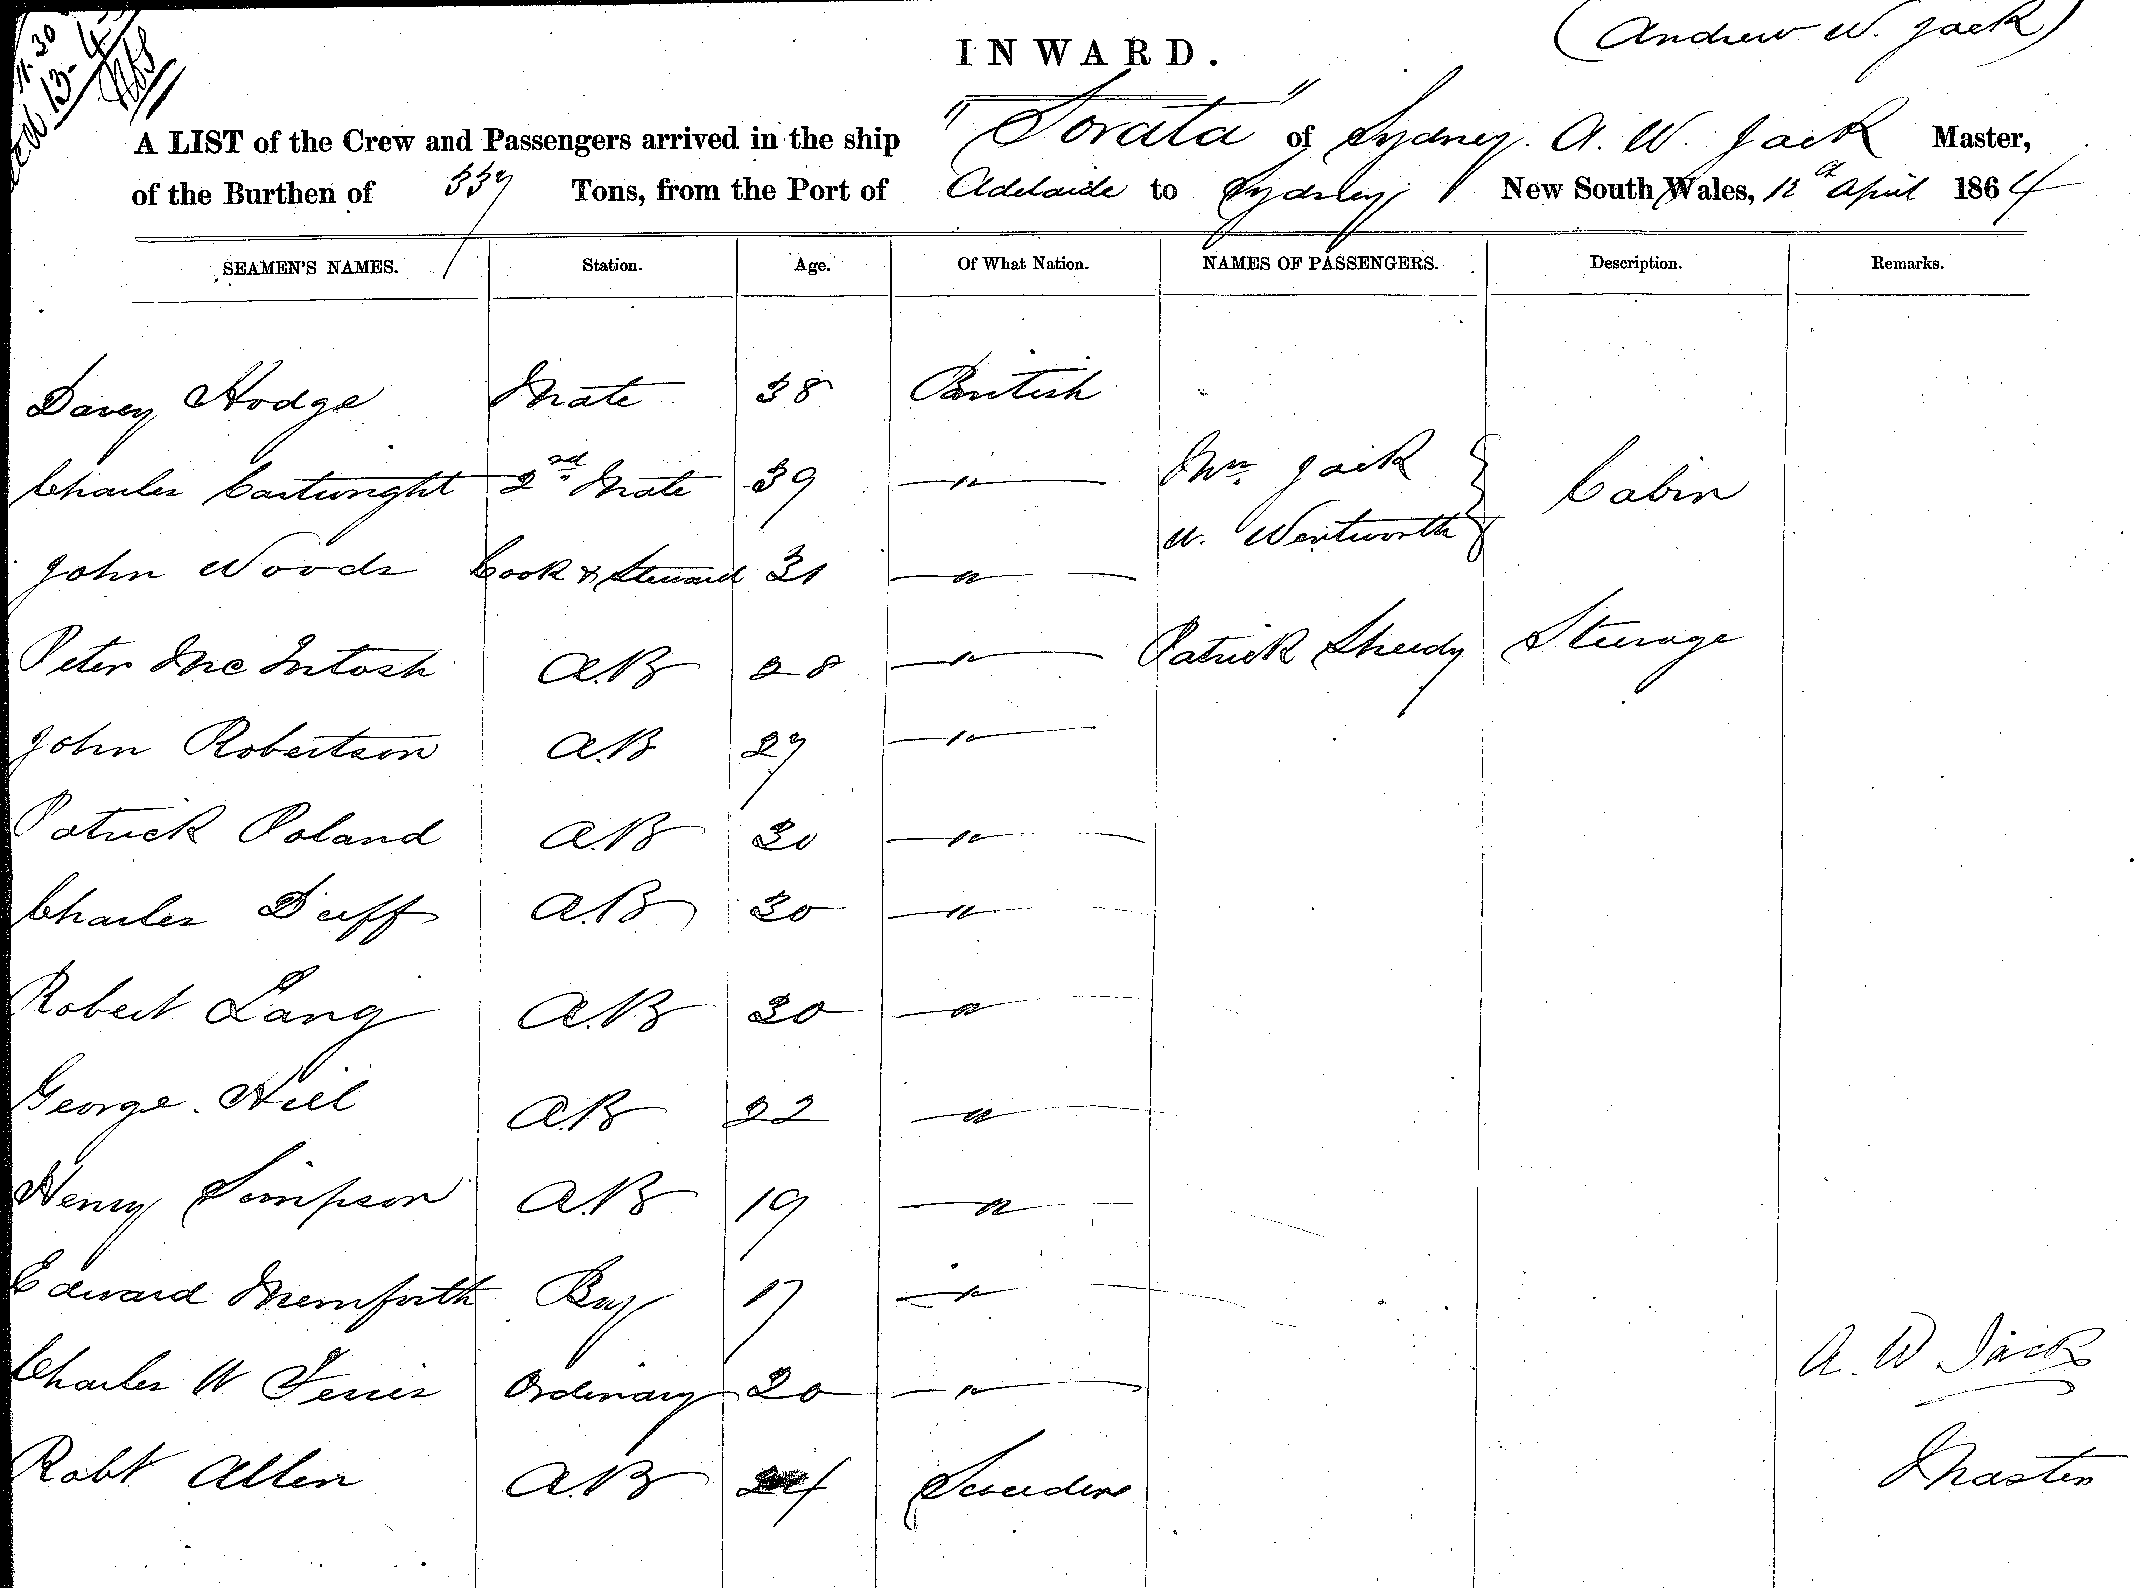 11.30
13-4
(Andrew W. Jack)
INWARD.
A LIST of the Crew and Passengers arrived in the ship "Sorata" of Sydney. A. W. Jack Master,
of the Burthen of 337 Tons, from the Port of Adelaide to Sydney New South Wales, 12th April 1864
SEAMEN'S NAMES. Station. Age. Of What Nation. NAMES OF PASSENGERS. Description. Remarks.
Davey Hodge Mate 38 British
Charles Cartwright 2nd Mate 39 " Mrs Jack Cabin
W. Wentworth
John Woods Cook & Steward 31 "
Peter McIntosh A.B 28 " Patrick Sheedy Steerage
John Robertson A.B 27 "
Patrick Poland A.B 30 "
Charles Duff A.B 30 "
Robert Lang A.B 30 "
George Hill A.B 22 "
Henry Simpson A.B 19 "
Edward Boy 17 "
A. W Jack
Charles W Ferris Ordinary 20 "
Robt Allen A.B 24 Sweden
Master